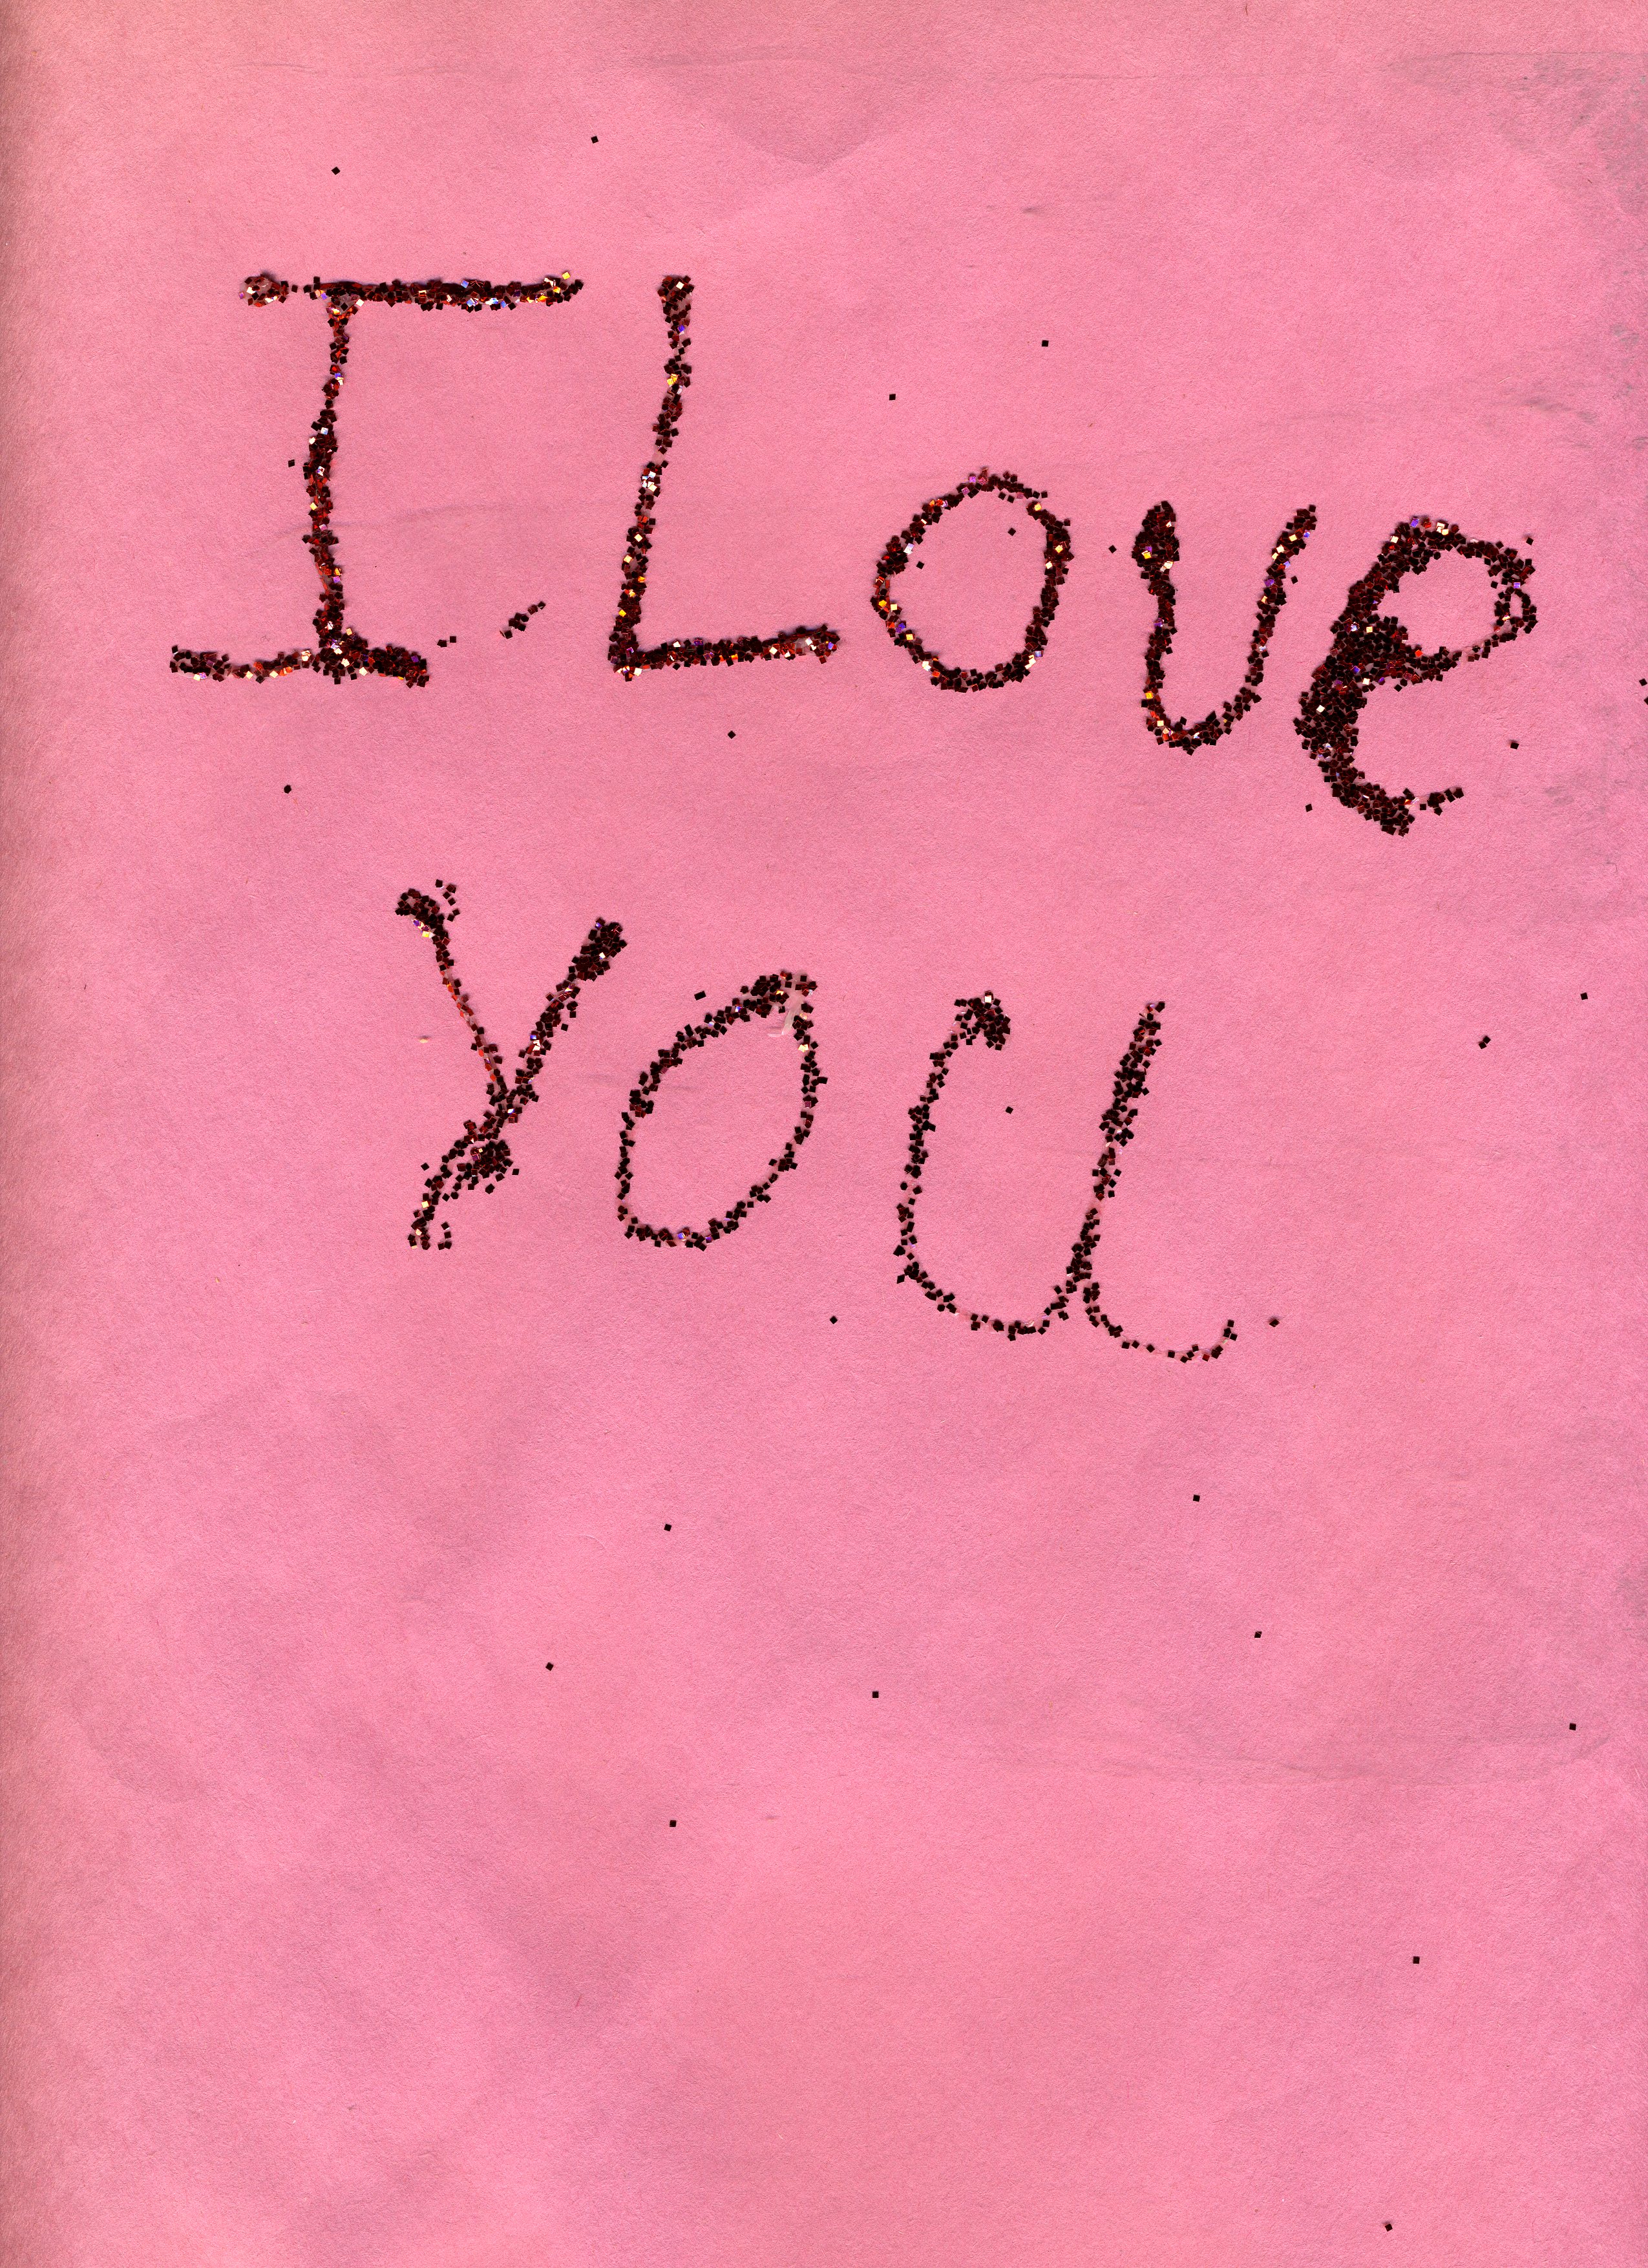 I Love
you